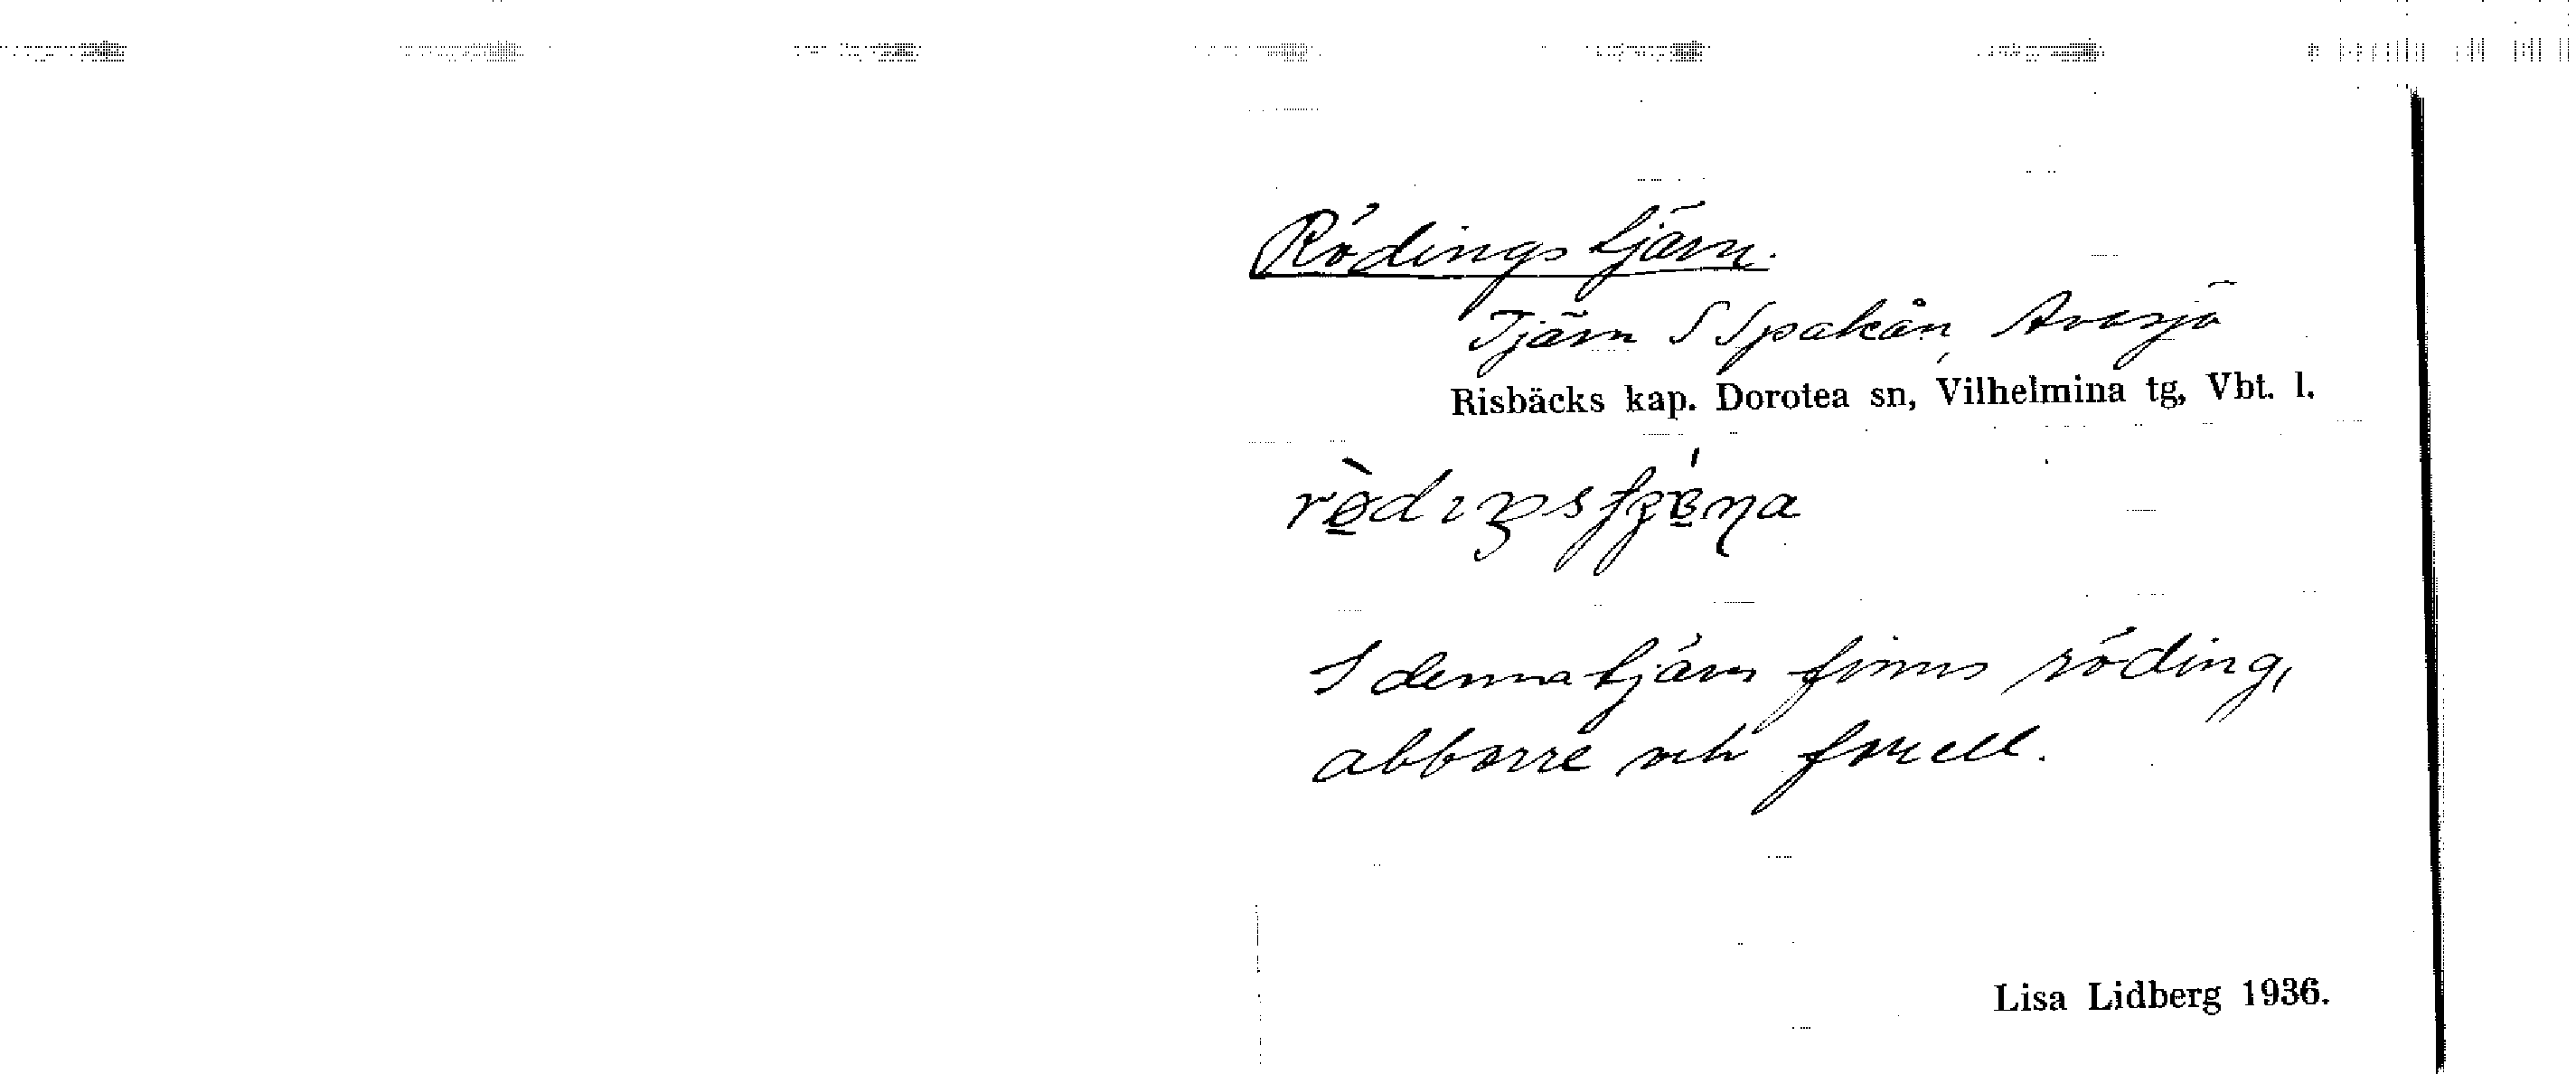 Rödingstjärn.
Tjärn S Spakån, Avasjö
Risbäcks kap. Dorotea sn, Vilhelmina tg, Vbt. l.
I denna tjärn finns röding,
abborre och forell.
Lisa Lidberg 1936.